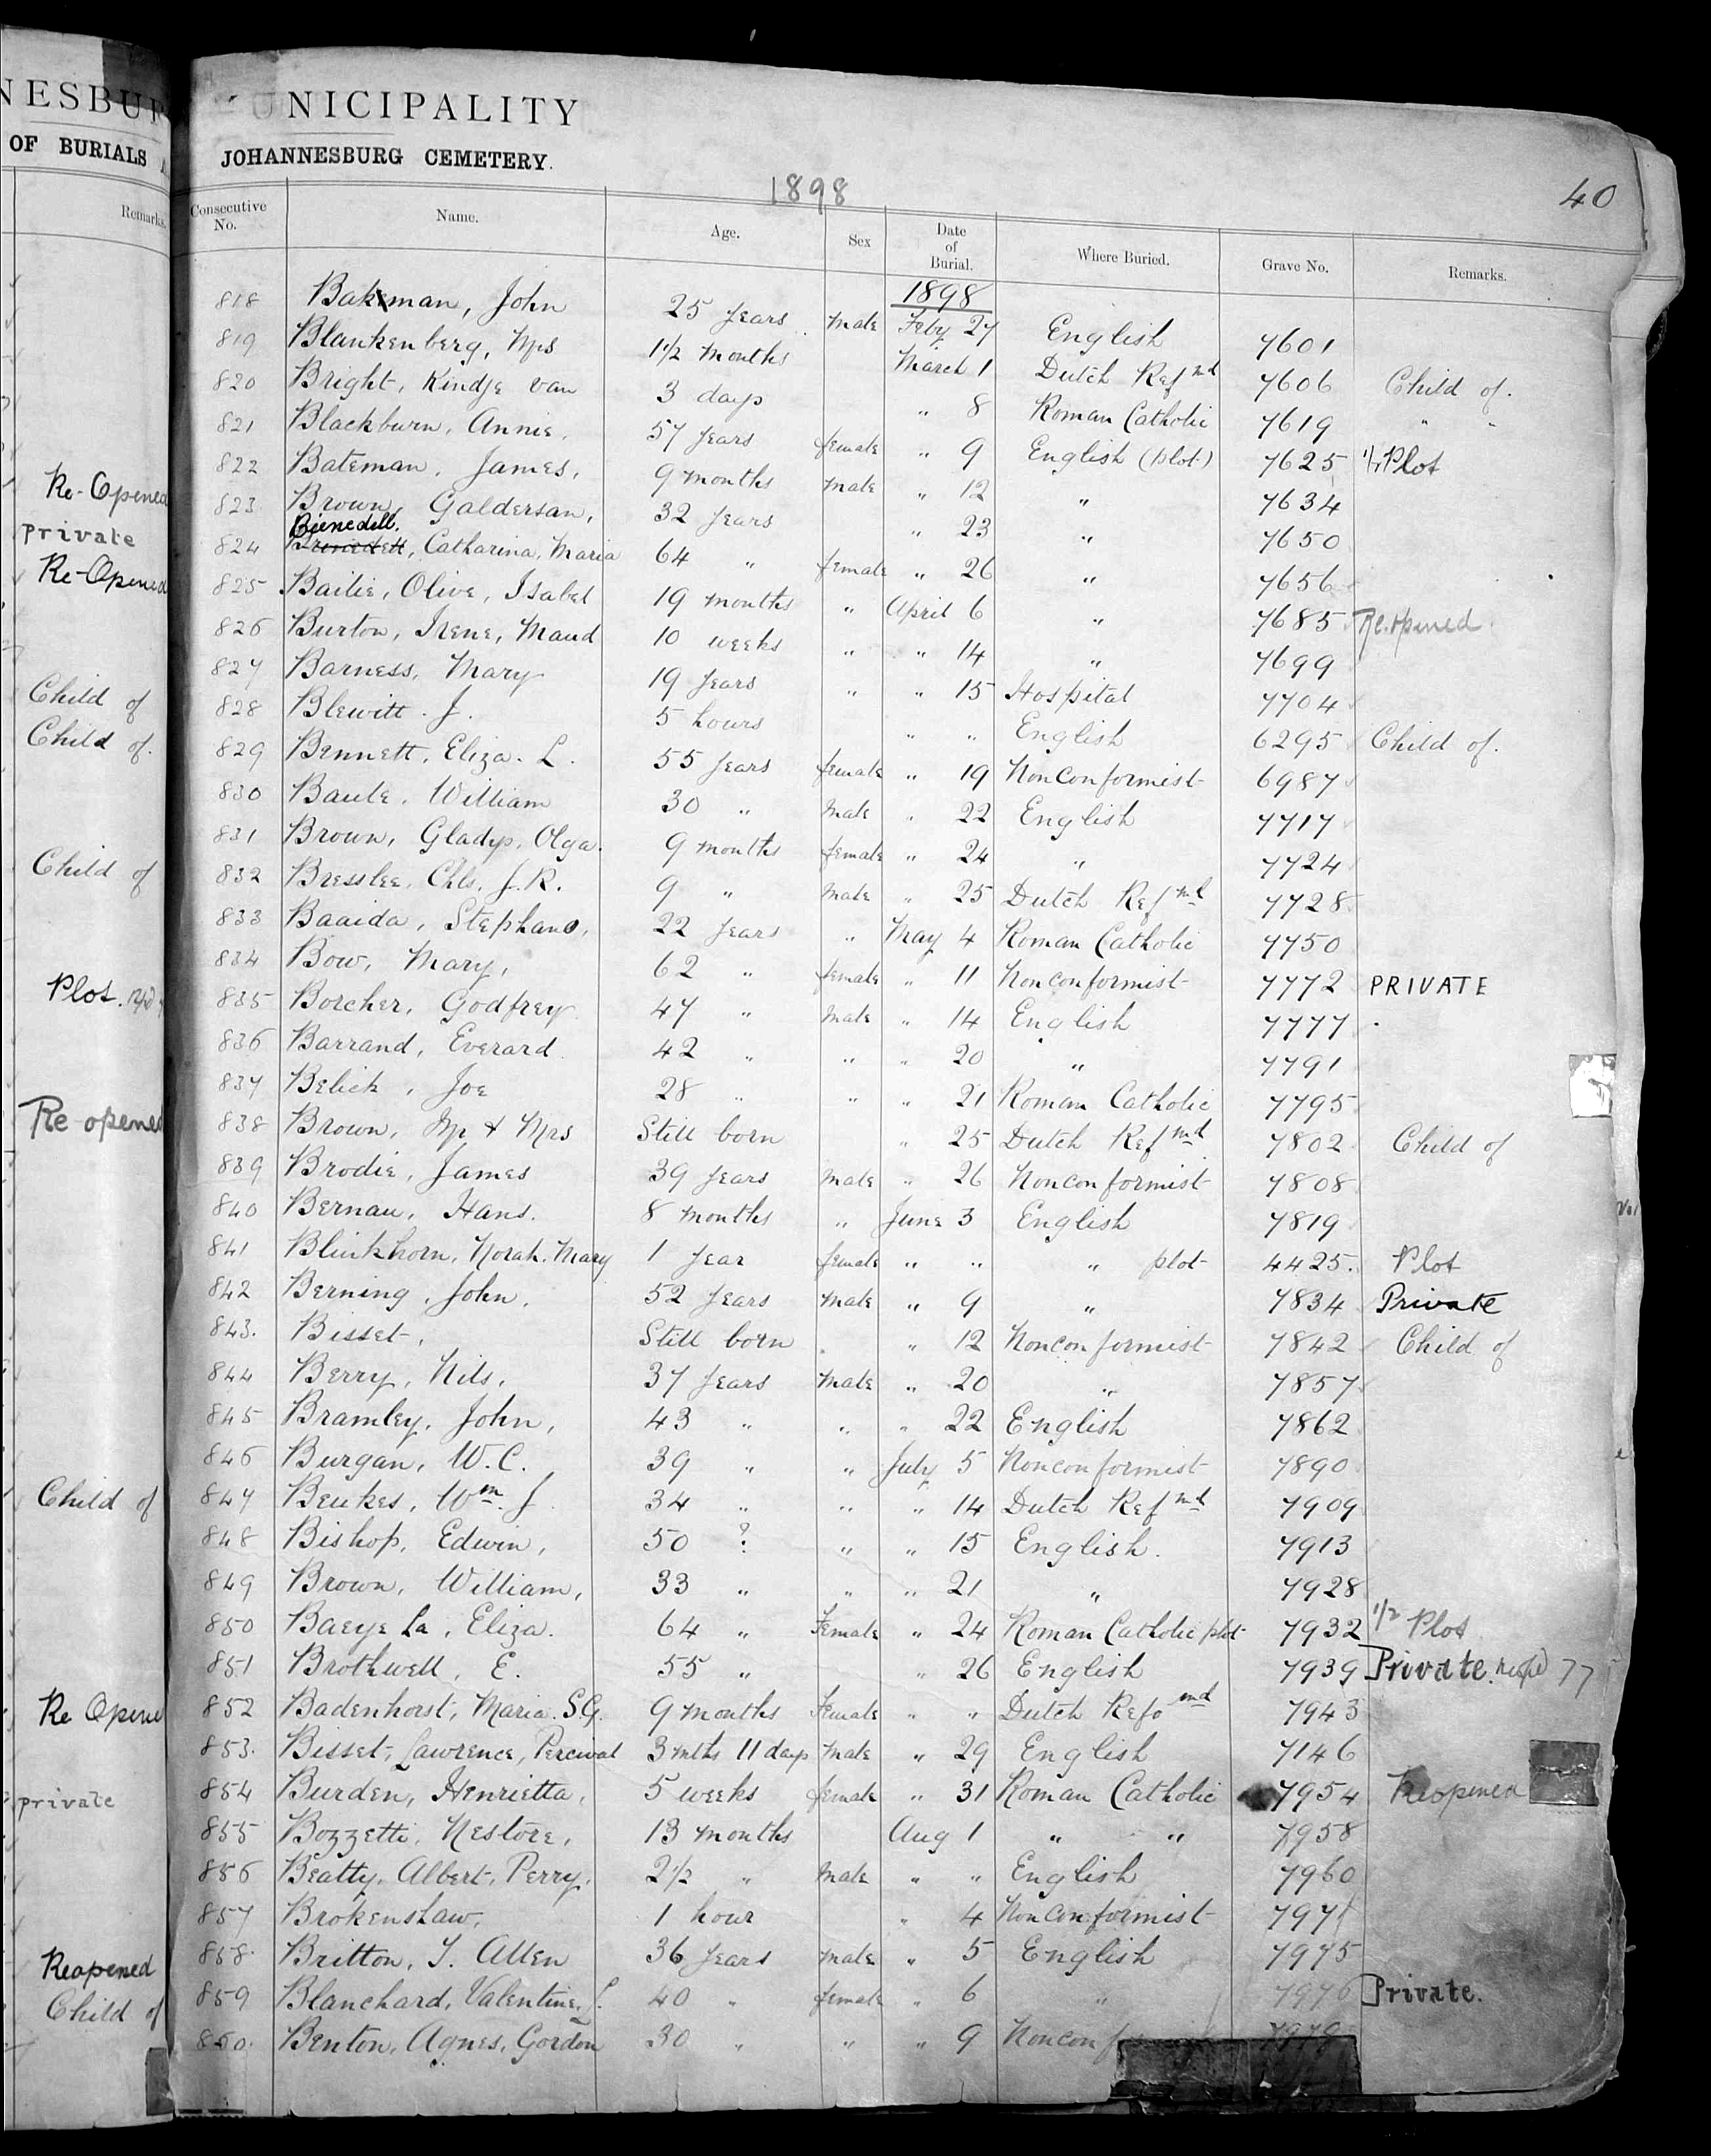 NESBUR
OF BURIALS
Remarks.
Re-Opened
private
Re-Opened
Child of
Child of.
Child of
Plot.
Re opened
Child of
Re Opene
private
Reopened
Child of
UNICIPALITY
JOHANNESBURG CEMETERY.
1898
40
Consecutive No. Name. Age. Sex Date of Burial. Where Buried. Grave No. Remarks.
1898
818 Bakman, John 25 years male Feby 27 English 7601
819 Blankenberg, Mrs 1 1/2 months March 1 Dutch Refmd 7606 Child of.
820 Bright, Kindje van 3 days " 8 Roman Catholic 7619 " "
821 Blackburn, Annie. 57 years female " 9 English (plot) 7625 1/2 Plot
822 Bateman, James, 9 months male " 12 " 7634
823 Brown, Galdersan, 32 years " 23 " 7650
824 Bienedell, Catharina, Maria 64 " female " 26 " 7656
825 Bailie, Olive, Isabel 19 months " April 6 " 7685 Re.opened
826 Burton, Irene, Maud 10 weeks " " 14 " 7699
827 Barness, Mary 19 years " " 15 Hospital 7704
828 Blewitt. J. 5 hours " " English 6295 Child of.
829 Bennett, Eliza. L. 55 years female " 19 Nonconformist 6987
830 Baule, William 30 " male " 22 English 7717
831 Brown, Gladys, Olga. 9 months female " 24 " 7724
832 Bresslee, Chls. J. R. 9 " male " 25 Dutch Refmd 7728
833 Baaida, Stephano, 22 years " May 4 Roman Catholic 7750
834 Bow, Mary, 62 " female " 11 Nonconformist 7772 PRIVATE
835 Borcher, Godfrey 47 " male " 14 English 7777
836 Barrand, Everard 42 " " " 20 " 7791
837 Belick, Joe 28 " " " 21 Roman Catholic 7795
838 Brown, Mr & Mrs Still born " 25 Dutch Refmd 7802 Child of
839 Brodie, James 39 years male " 26 Nonconformist 7808
840 Bernau, Hans. 8 months " June 3 English 7819
841 Blinkhorn, Norah. Mary 1 year female " " " plot 4425. Plot
842 Berning, John, 52 years male " 9 " 7834 Private
843. Bisset, Still born " 12 Nonconformist 7842 Child of
844 Berry, Nils, 37 years male " 20 " 7857
845 Bramley, John, 43 " " " 22 English 7862
846 Burgan, W. C. 39 " " July 5 Nonconformist 7890
847 Beukes, Wm. J 34 " " " 14 Dutch Refmd 7909
848 Bishop, Edwin, 50 ? " " 15 English. 7913
849 Brown, William, 33 " " " 21 " 7928
850 Baeye La, Eliza. 64 " Female " 24 Roman Catholic plot 7932 1/2 Plot
851 Brothwell, E. 55 " " 26 English 7939 Private. 77
852 Badenhorst, Maria. S.G. 9 months Female " " Dutch Refomd 7943
853. Bisset, Lawrence, Percival 3 mths 11 days male " 29 English 7146
854 Burden, Henrietta, 5 weeks female " 31 Roman Catholic 7954 Reopened
855 Bozzetti, Nestore, 13 months Aug 1 " " 7958
856 Beatty, Albert, Perry, 2 1/2 " male " " English 7960
857 Brokenshaw, 1 hour " 4 Nonconformist 7971
858 Britton, T. Allen 36 years male " 5 English 7975
859 Blanchard, Valentine, L. 40 " female " 6 " 7976 Private.
860. Benton, Agnes, Gordon 30 " " " 9 7979